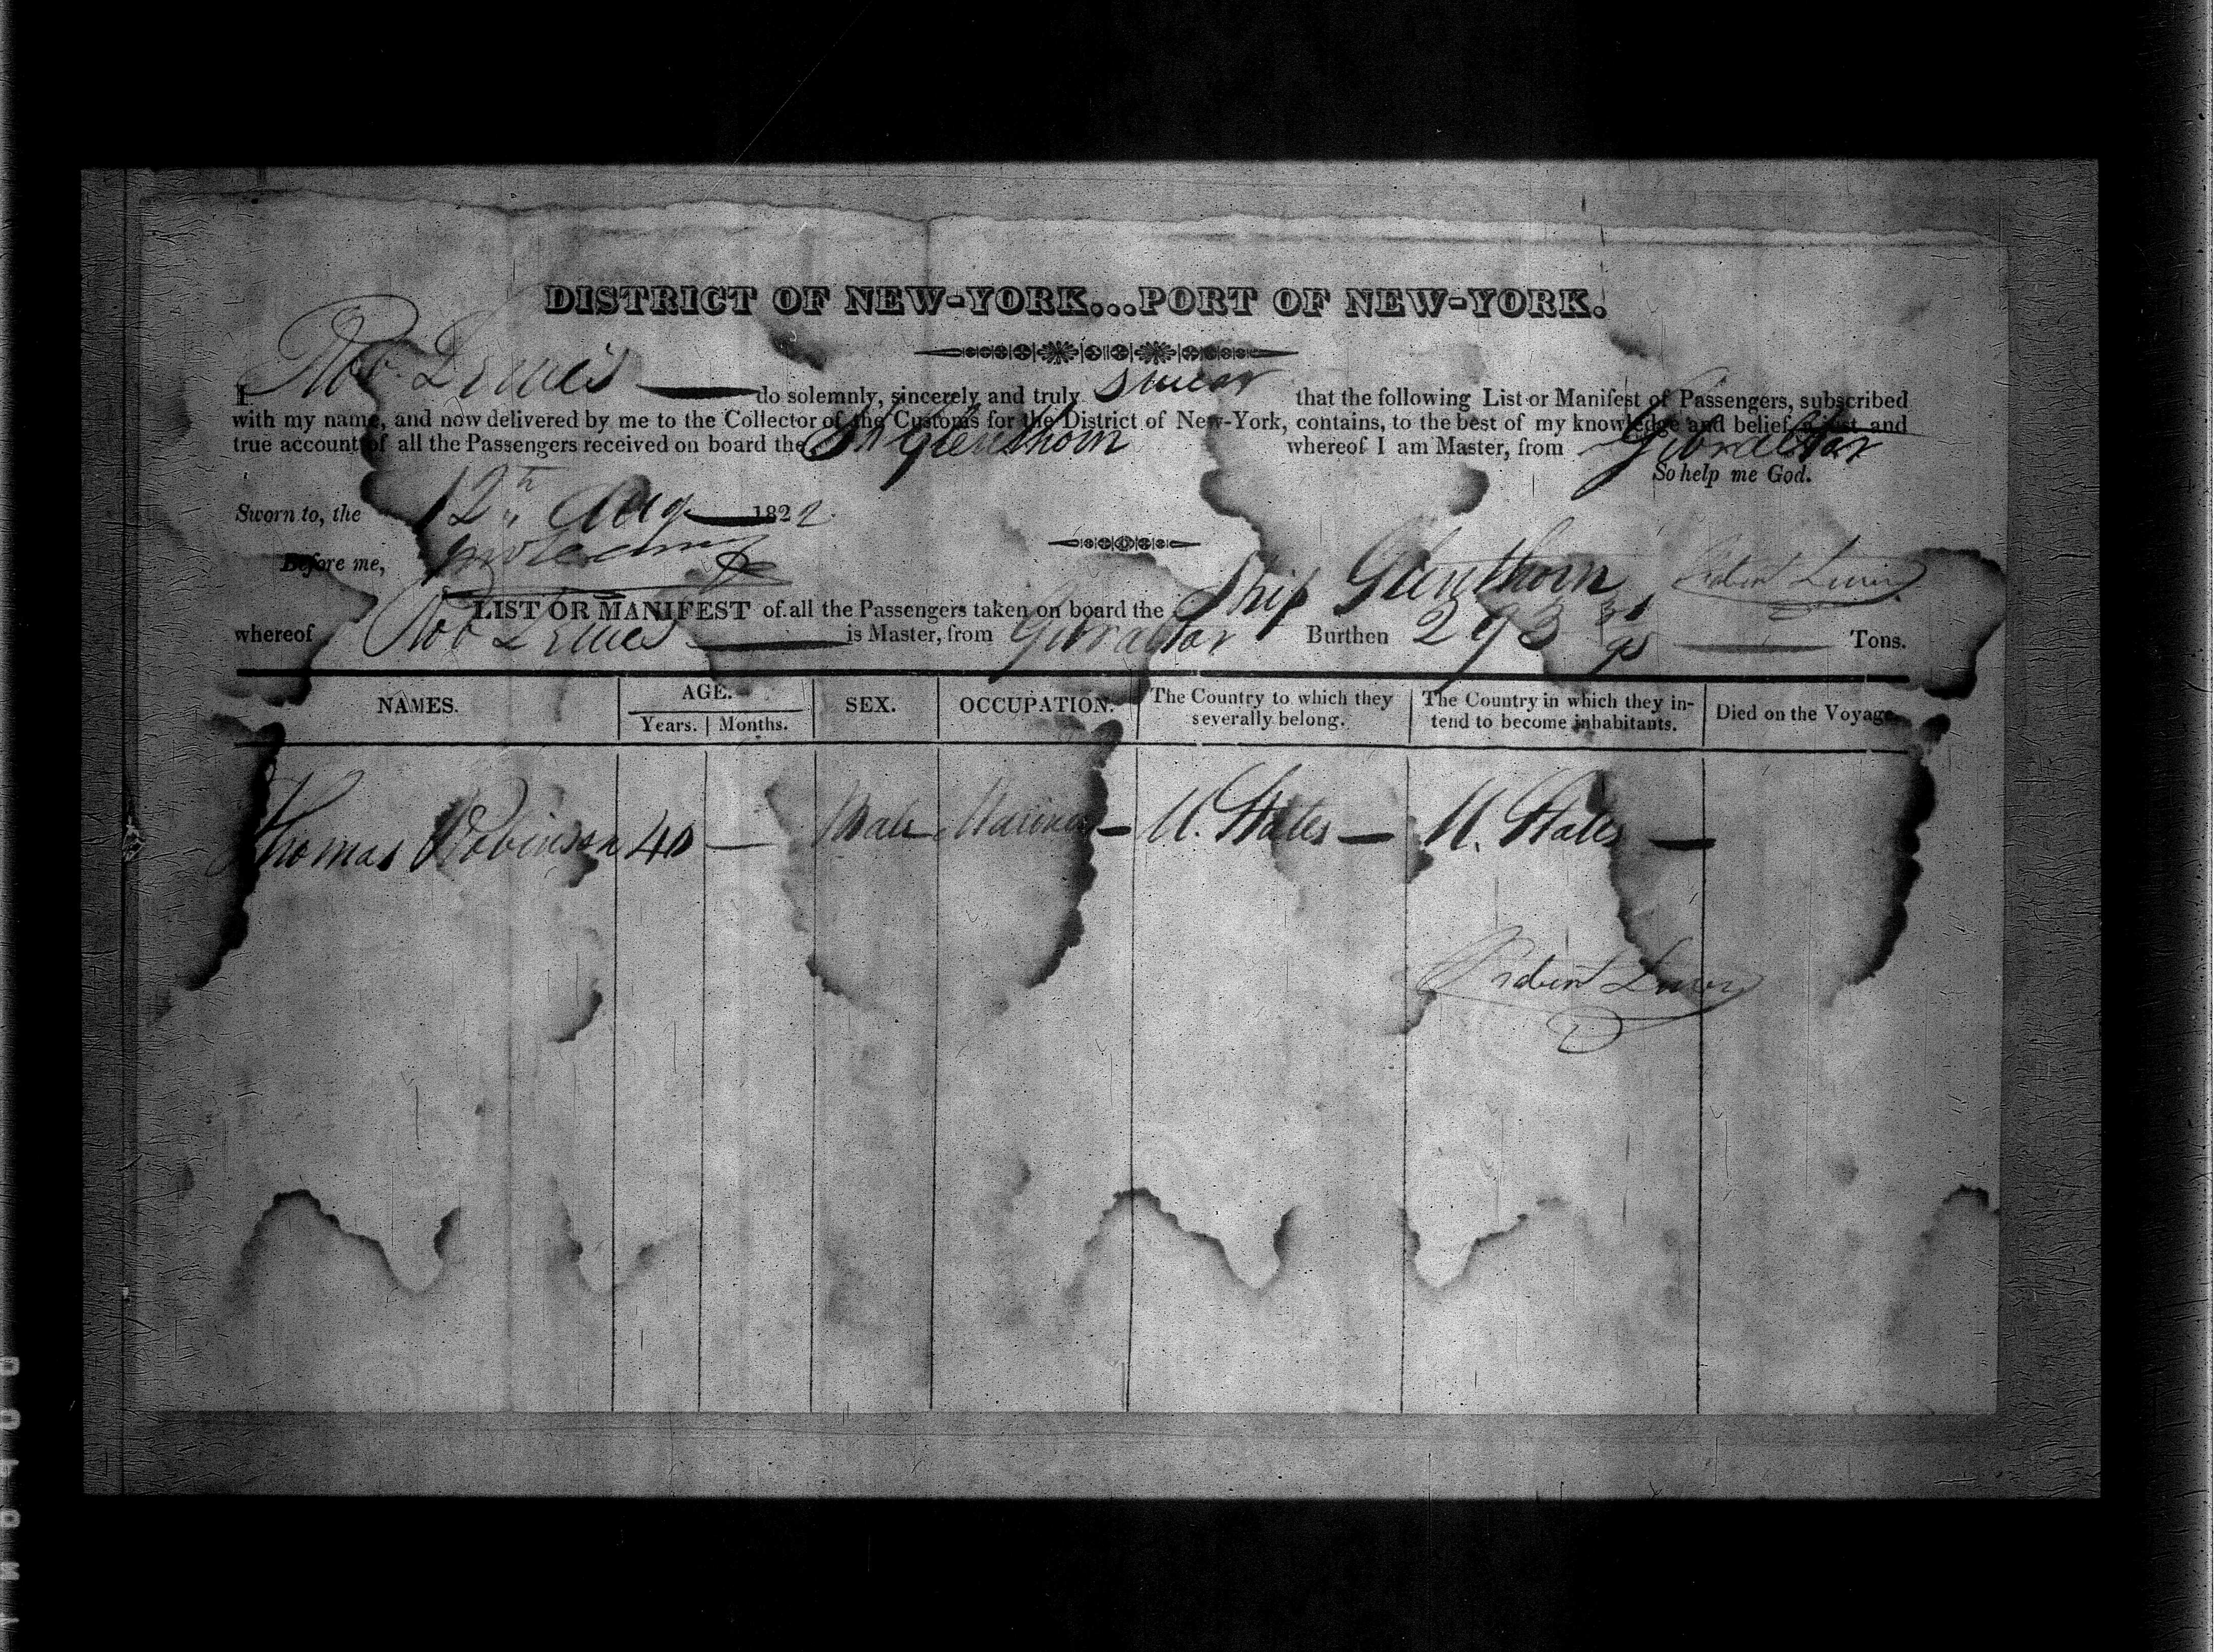 DISTRICT OF NEW-YORK...PORT OF NEW-YORK.
I Rob. Lewis do solemnly, sincerely and truly swear that the following List or Manifest of Passengers, subscribed
with my name, and now delivered by me to the Collector of the Customs for the District of New-York, contains, to the best of my knowledge and belief, a just and
true account of all the Passengers received on board the Sh Glenthorn whereof I am Master, from Gibraltar
So help me God.
Sworn to, the 12th Aug 1822
Before me,
Robert Lewis
LIST OR MANIFEST of all the Passengers taken on board the Ship Glenthorn
whereof Rob Lewis is Master, from Gibraltar Burthen 293 31/95 Tons.
NAMES. AGE. SEX. OCCUPATION. The Country to which they severally belong. The Country in which they in- tend to become inhabitants. Died on the Voyage.
Years. Months.
Thomas Robinson 40 — Male Mariner — U. States — U. States —
Robert Lewis